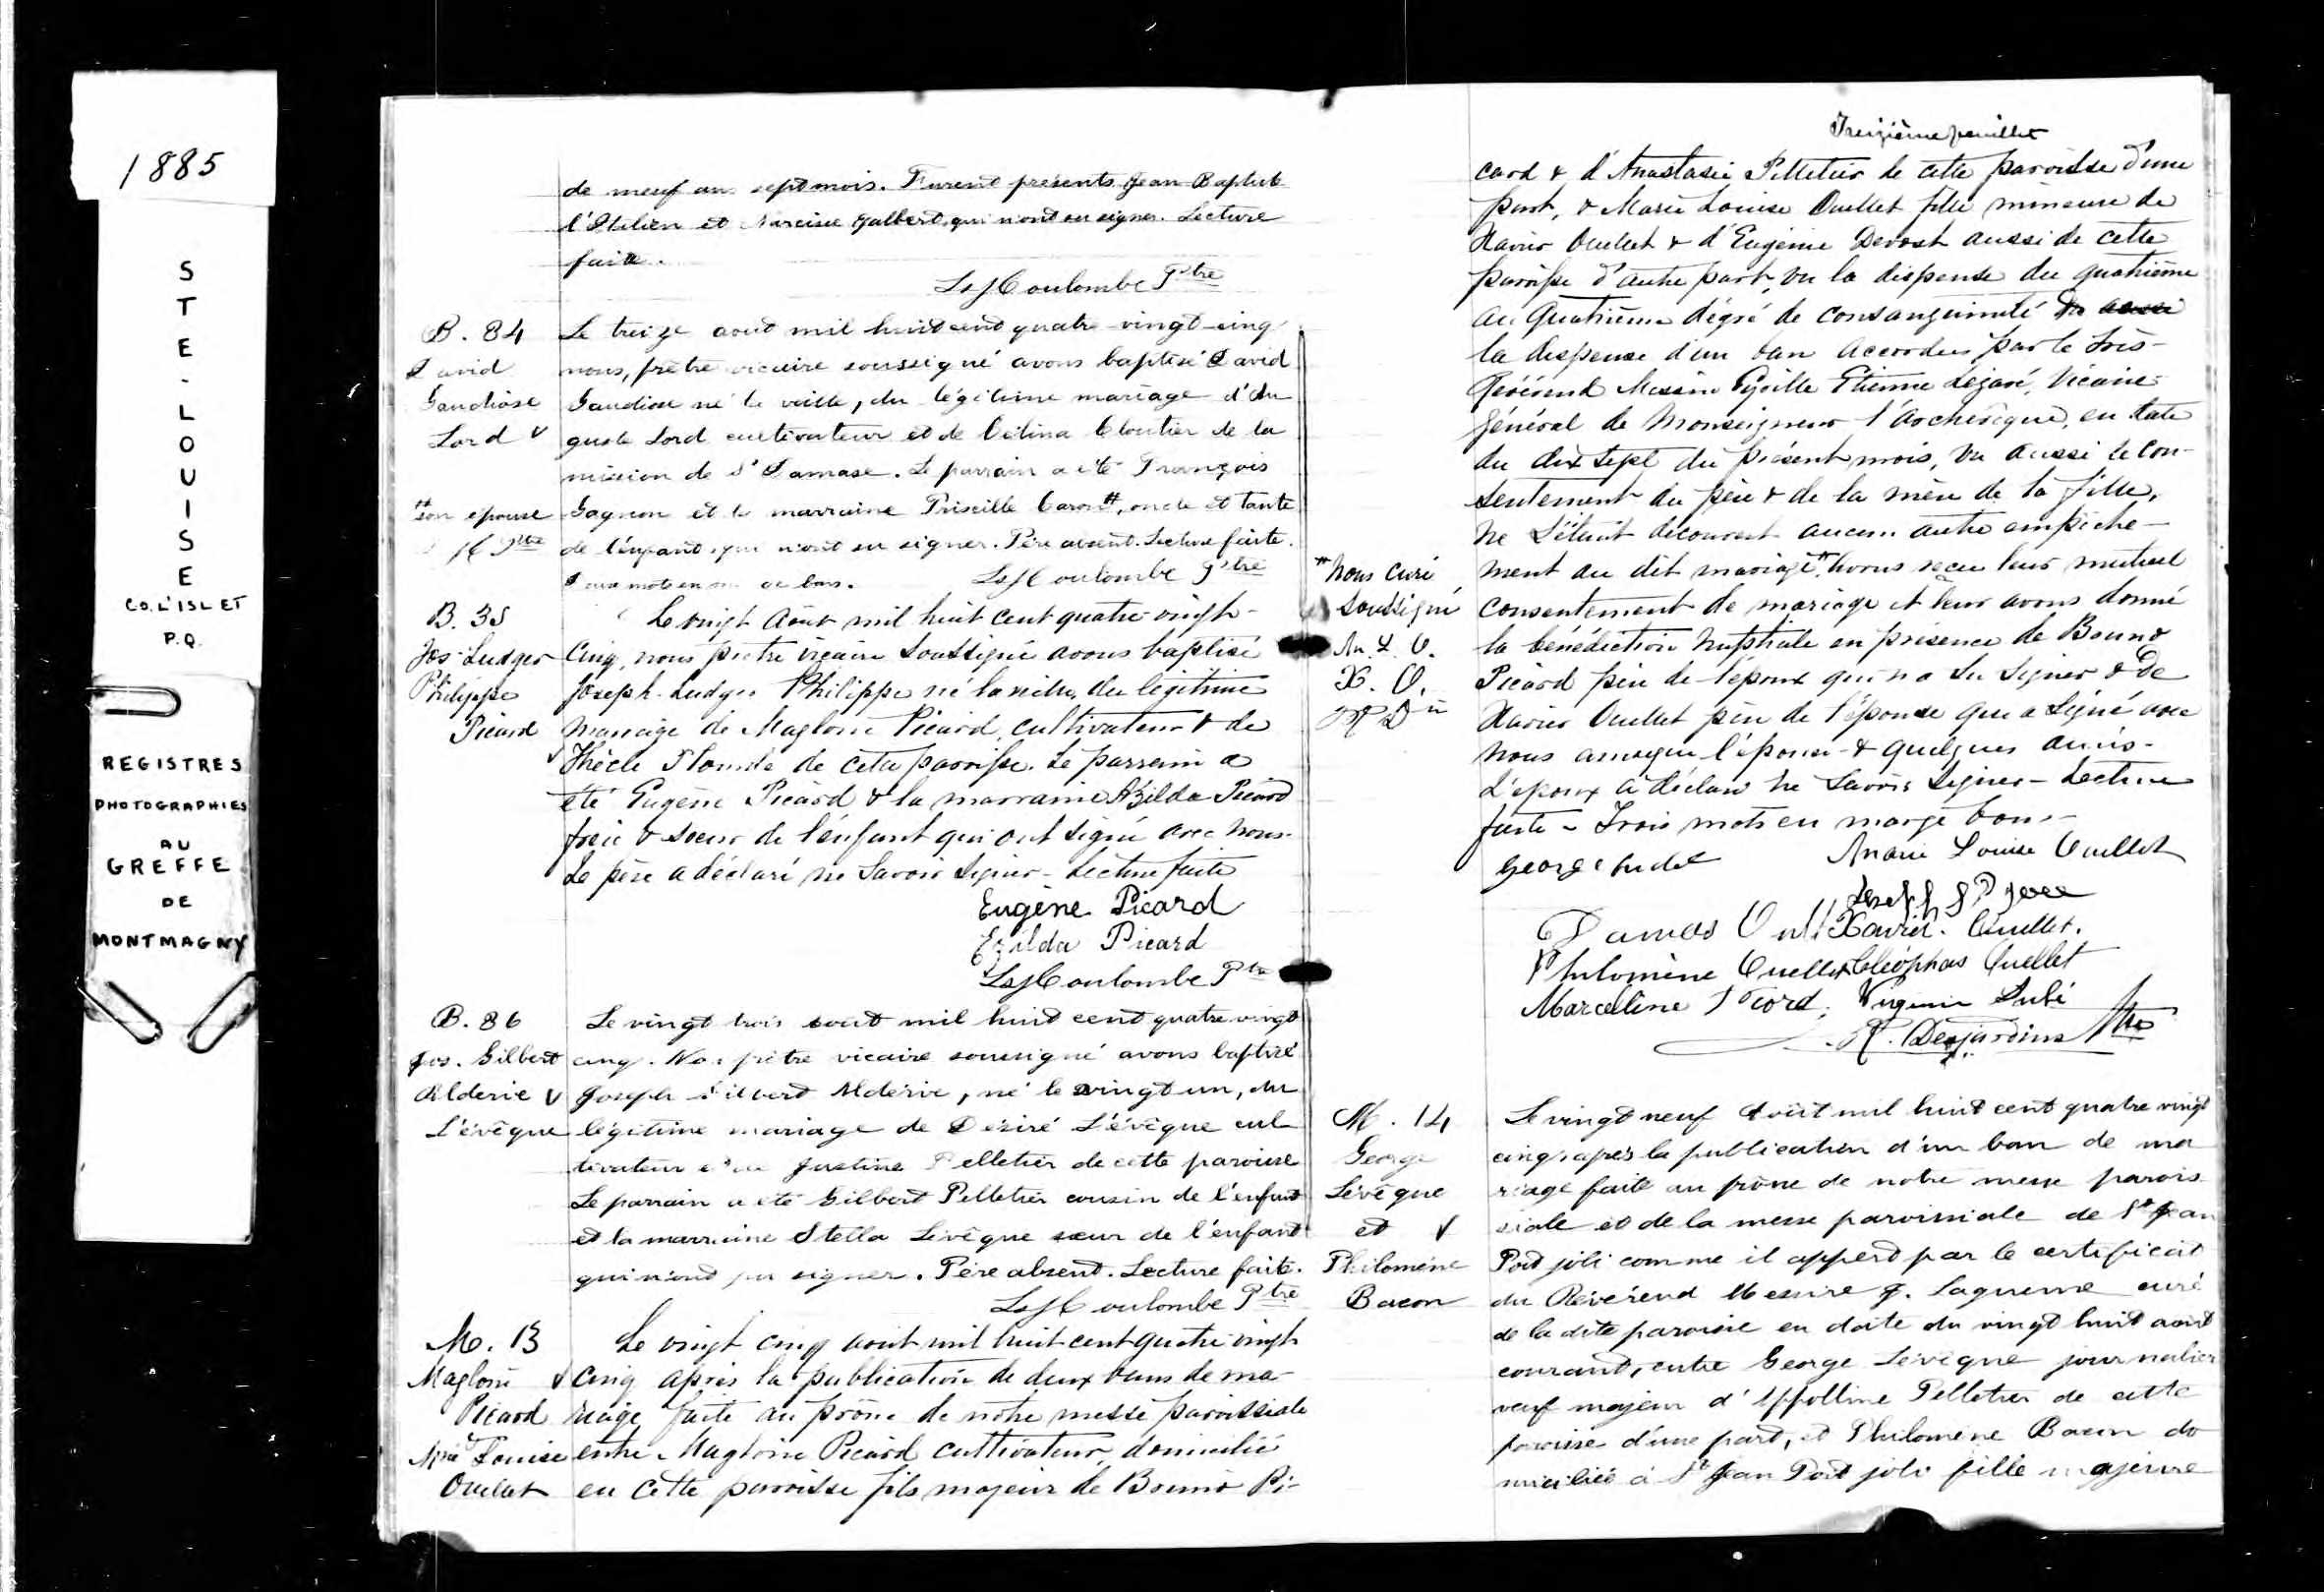 1885
STE-LOUISE
CO. L'ISLET
P.Q.
REGISTRES
PHOTOGRAPHIES
AU
GREFFE
DE
MONTMAGNY
de neuf ans sept mois. Furent présents Jean-Baptiste
l'Italien et Narcisse Galbert qui n'ont su signer. Lecture
faite.
Ls J Coulombe Ptre
B. 84
David
Gaudiose
Lord
Le treize aout mil huit cent quatre-vingt-cinq
nous, prêtre vicaire soussigné avons baptisé David
Gaudiose né la veille, du légitime mariage d'Au
guste Lord cultivateur et de Célina Cloutier de la
mission de St Damase. Le parrain a été François
# son épouse
Gagnon et la marraine Priscille Caron #, oncle et tante
de l'enfant qui n'ont su signer. Père absent. Lecture faite.
Deux mots en bons.
Ls J Coulombe Ptre
B. 85
Jos-Ludger
Philippe
Picard
Le vingt Août mil huit cent quatre-vingt-
Cinq, nous prêtre vicaire soussigné avons baptisé
Joseph-Ludger Philippe né la veille, du légitime
mariage de Magloire Picard, cultivateur & de
Thècle de cette paroisse. Le parrain a
été Eugène Picard & la marraine Azilda Picard
frère & soeur de l'enfant qui ont signé avec nous.
Le père a déclaré ne savoir signer - Lecture faite
Eugène Picard
Ezilda Picard
Ls J Coulombe Ptre
B. 86
Jos. Gilbert
Alderie
L'évêque
Le vingt trois aout mil huit cent quatre vingt
cinq. Nous prêtre vicaire soussigné avons baptisé
Joseph Gilbert Alderie, né le vingt un, du
légitime mariage de Désiré L'évêque cul
tivateur et de Justine Pelletier de cette paroisse
Le parrain a été Gilbert Pelletier cousin de l'enfant
et la marraine Stella Lévêque soeur de l'enfant
qui n'ont pu signer. Père absent. Lecture faite.
Ls J Coulombe Ptre
M. 13
Magloire
Picard
Mie Louise
Ouellet
Le vingt cinq aout mil huit cent quatre-vingt
Cinq après la publication de deux bans de ma-
riage faite au prône de notre messe paroissiale
entre Magloire Picard cultivateur, domicilié
en cette paroisse fils majeur de Bruno Pi-
Treizième feuillet
card & d'Anastasie Pelletier de cette paroisse d'une
part, & Marie Louise Ouellet fille mineure de
Xavier Ouellet & d'Eugénie Devost aussi de cette
paroisse d'autre part, vu la dispense du quatrième
au quatrième dégré de consanguinité
la dispense d'un ban accordées par le très-
Révérend Messire Cyrille Etienne Légaré, Vicaire-
Général de Monseigneur l'archevêque, en date
du dix sept du présent mois, vu aussi le con-
sentement du père & de la mère de la fille,
ne s'étant découvert aucun autre empêche-
ment au dit mariage # avons reçu leur mutuel
# Nous curé
soussigné
M. L. O.
X. O.
consentement de mariage et leur avons donné
la bénédiction nuptiale en présence de Bruno
Picard père de l'époux qui n'a su signer & de
Xavier Ouellet père de l'épouse qui a signé avec
nous ainsi que l'épouse & quelques amis-
L'époux a déclaré ne savoir signer - Lecture
faite - Trois mots en marge bons-
George
Marie Louise Ouellet
Xavier Ouellet.
Philomène Ouellet
Cléophas Ouellet
Marcelline Picard
Virginie Dubé
R. Desjardins Ptre
M. 14
George
Lévêque
et
Philomène
Bacon
Le vingt neuf Août mil huit cent quatre vingt
cinq, après la publication d'un ban de ma
riage faite au prône de notre messe parois
siale et de la messe paroissiale de St Jean
Port joli comme il appert par le certificat
du Révérend Messire J. Lagueux curé
de la dite paroisse en date du vingt huit aout
courant, entre George Lévêque journalier
veuf majeur d'Appolline Pelletier de cette
paroisse d'une part, et Philomène Bacon do
miciliée à St Jean Port joli fille majeure